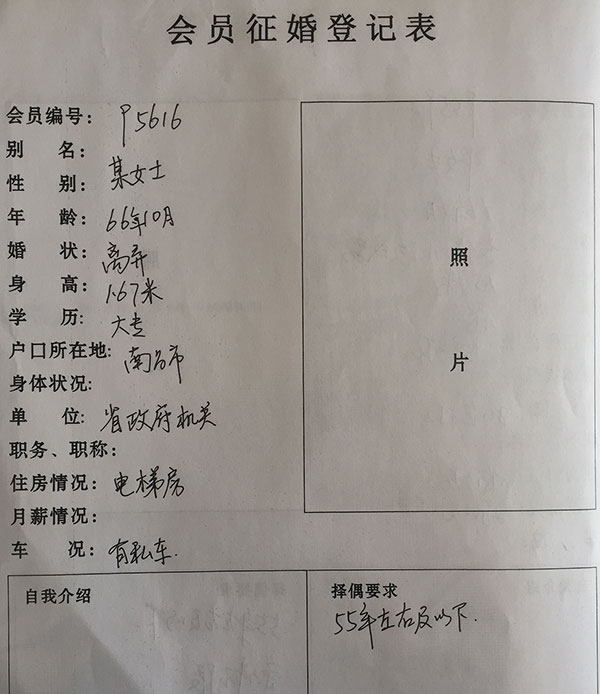 会员征婚登记表
会员编号： P5616
别 名：
性 别： 某女士
年 龄： 66年10月
婚 状： 离异
身 高： 1.67米
学 历： 大专
户口所在地： 南昌市
身体状况：
单 位： 省政府机关
职务、职称：
住房情况： 电梯房
月薪情况：
车 况： 有私车.
照
片
自我介绍
择偶要求
55年左右及以下.